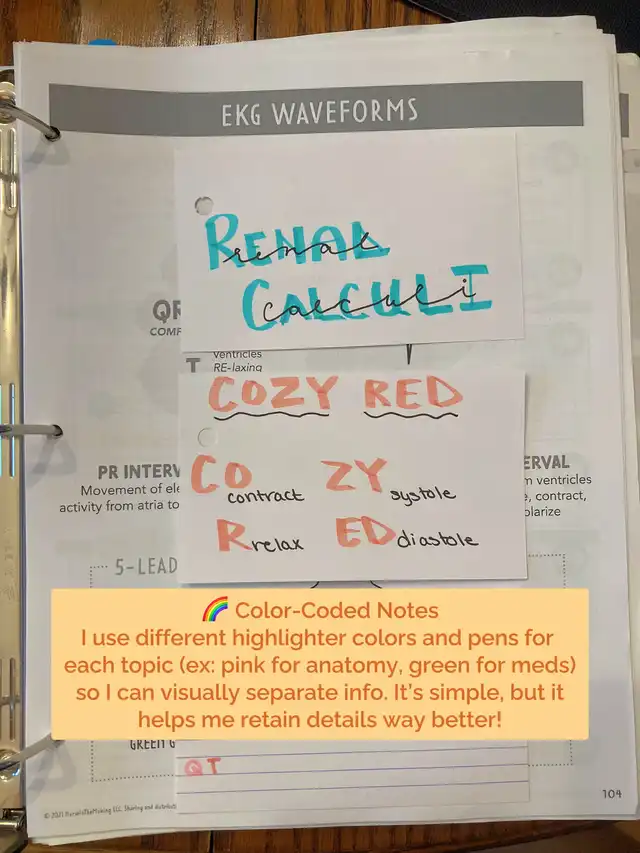 EKG WAVEFORMS
RENAL
renal
CALCULI
calculi
QR
COMP
T ventricles
RE-laxing
COZY RED
CO contract ZY systole
R relax ED diastole
PR INTERV
Movement of ele
activity from atria to
ERVAL
m ventricles
e, contract,
polarize
5-LEAD
🌈 Color-Coded Notes
I use different highlighter colors and pens for
each topic (ex: pink for anatomy, green for meds)
so I can visually separate info. It's simple, but it
helps me retain details way better!
GREEN G
QT
© 2021 NurseInTheMaking LLC. Sharing and distribut
104